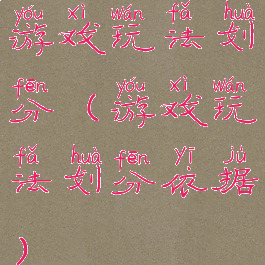 yóu xì wán fǎ huà
游戏玩法划
fēn yóu xì wán
分（游戏玩
fǎ huà fēn yī jù
法划分依据
）